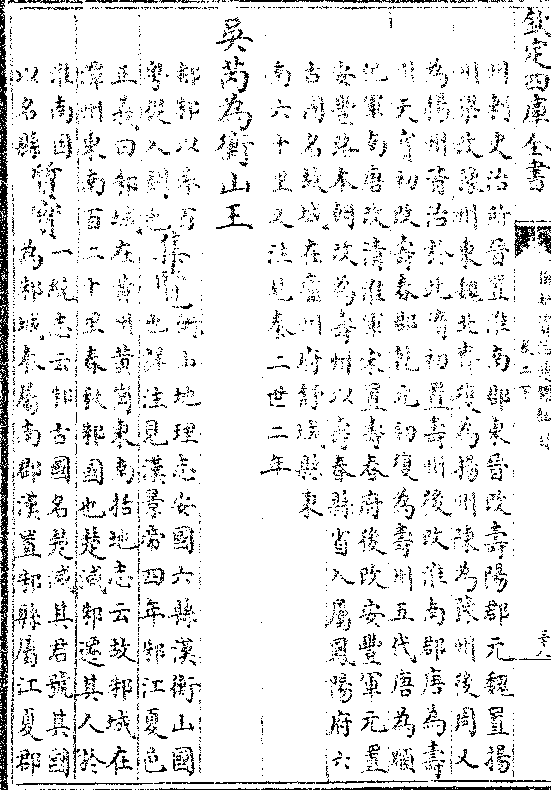 欽定四庫全書
州刺史治所晉置淮南郡東晉改壽陽郡元魏置揚
州梁改豫州東魏北齊復為揚州陳為豫州後周又
為揚州隋治於此隋初置壽州後改淮南郡唐為壽
州天寳初改壽春郡乾元初復為壽州五代唐為順
化軍南唐改清淮軍宋置壽春府後改安豐軍元置
安豐路本朝改為壽州以壽春縣省入屬鳳陽府六
古國名故城在廬州府舒城縣東
南六十里又注見秦二世二年
吳芮為衡山王
都邾以
粤從入闗也
集覽
衡山地理志安國六縣漢衡山國
也詳注見漢景帝四年邾江夏邑
正義曰邾城在黄州黄岡東南括地志云故邾城在
潭州東南百二十里春秋邾國也楚滅邾遷其人於
淮南因
以名縣
質實
一統志云邾古國名楚滅其君號其國
為邾城秦屬南郡漢置邾縣屬江夏郡